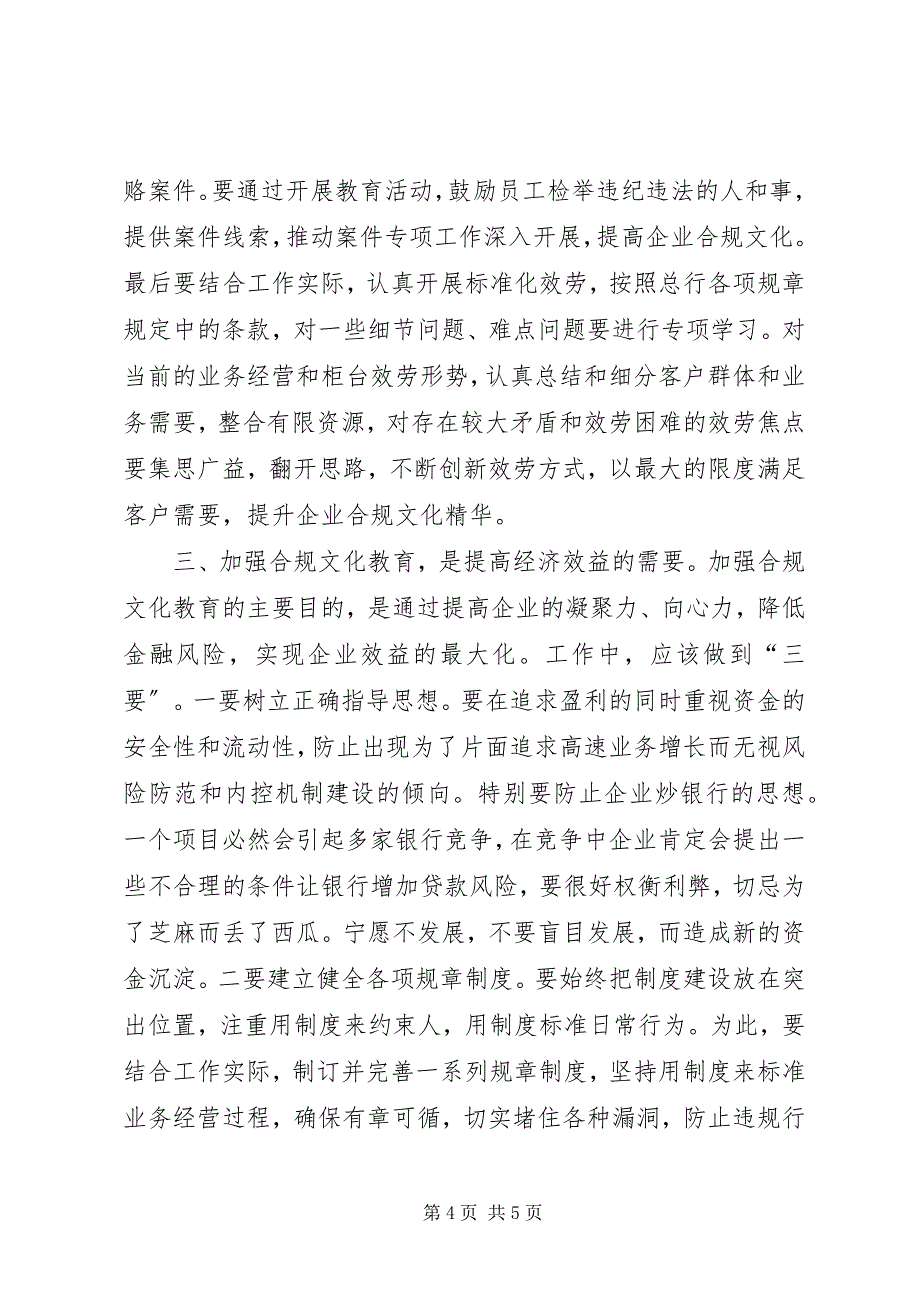 赂案件。要通过开展教育活动，鼓励员工检举违纪违法的人和事，
提供案件线索，推动案件专项工作深入开展，提高企业合规文化。
最后要结合工作实际，认真开展标准化效劳，按照总行各项规章
规定中的条款，对一些细节问题、难点问题要进行专项学习。对
当前的业务经营和柜台效劳形势，认真总结和细分客户群体和业
务需要，整合有限资源，对存在较大矛盾和效劳困难的效劳焦点
要集思广益，翻开思路，不断创新效劳方式，以最大的限度满足
客户需要，提升企业合规文化精华。
三、加强合规文化教育，是提高经济效益的需要。加强合规
文化教育的主要目的，是通过提高企业的凝聚力、向心力，降低
金融风险，实现企业效益的最大化。工作中，应该做到“三
要〞。一要树立正确指导思想。要在追求盈利的同时重视资金的
安全性和流动性，防止出现为了片面追求高速业务增长而无视风
险防范和内控机制建设的倾向。特别要防止企业炒银行的思想。
一个项目必然会引起多家银行竞争，在竞争中企业肯定会提出一
些不合理的条件让银行增加贷款风险，要很好权衡利弊，切忌为
了芝麻而丢了西瓜。宁愿不发展，不要盲目发展，而造成新的资
金沉淀。二要建立健全各项规章制度。要始终把制度建设放在突
出位置，注重用制度来约束人，用制度标准日常行为。为此，要
结合工作实际，制订并完善一系列规章制度，坚持用制度来标准
业务经营过程，确保有章可循，切实堵住各种漏洞，防止违规行
第 4 页 共 5 页